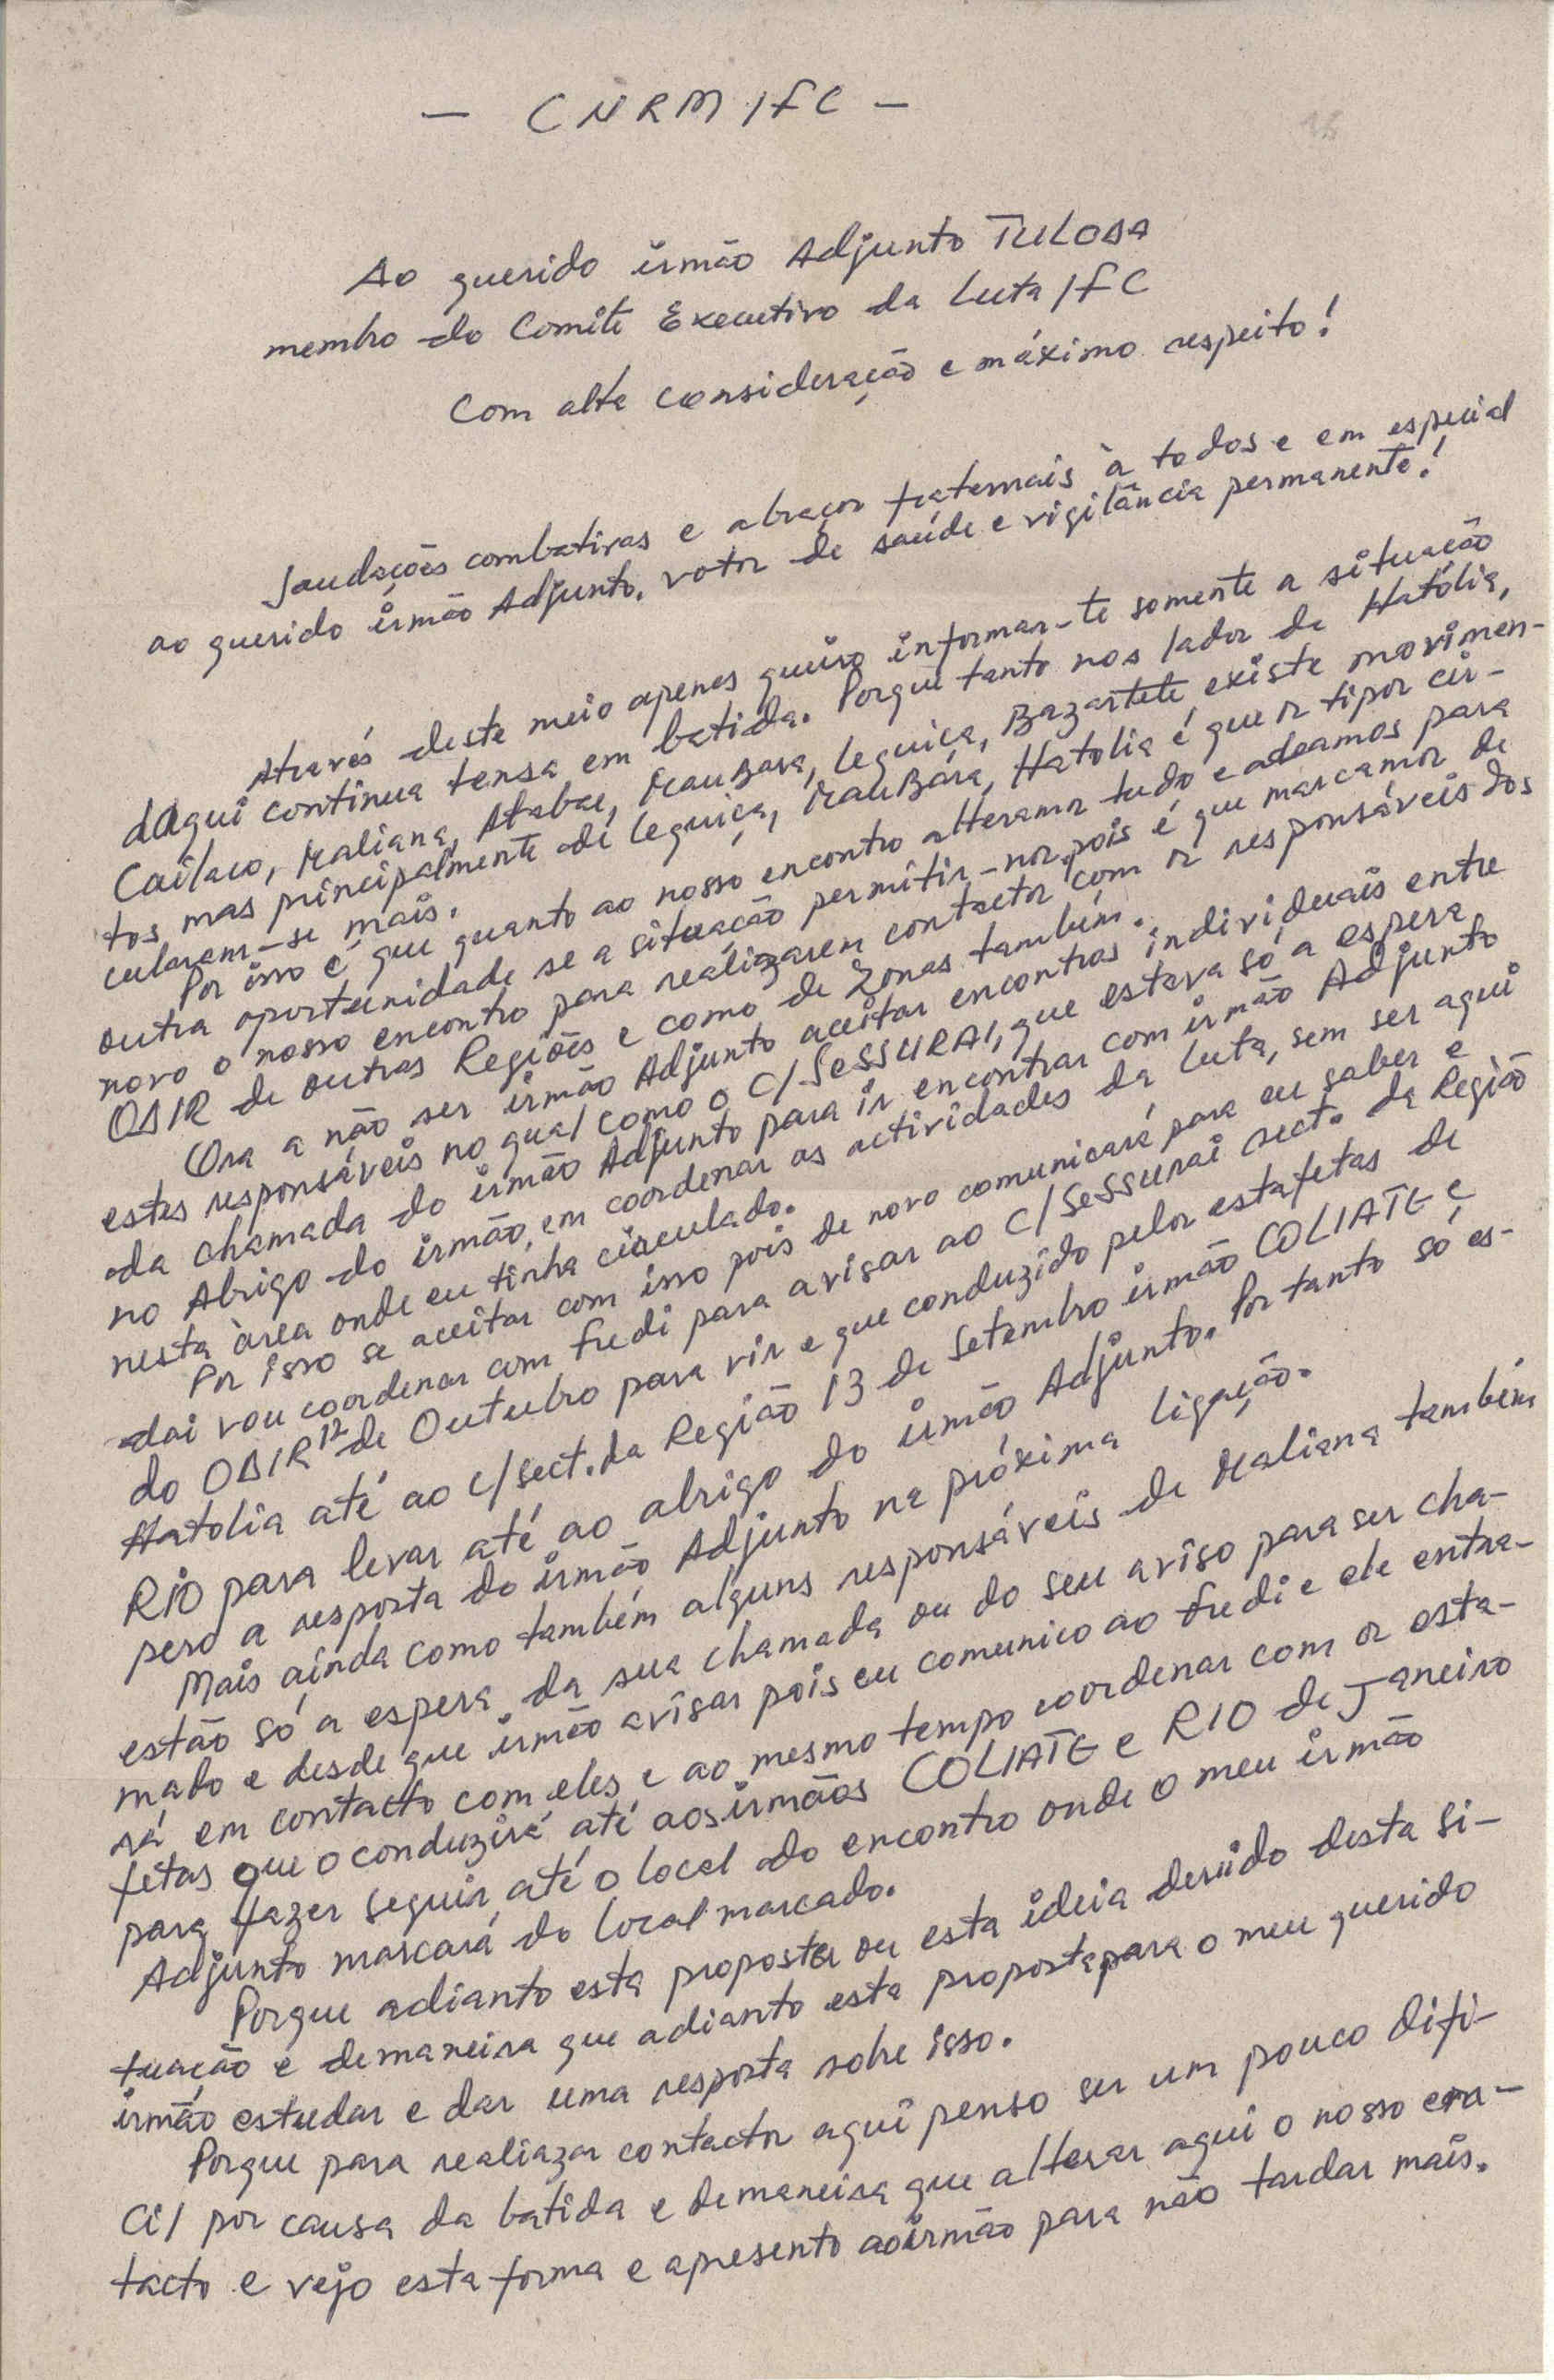 - CNRM/FC -
Ao querido irmão Adjunto TULODA
membro do Comité Executivo da Luta/FC
Com alta consideração e máximo respeito!
Saudações combativas e abraços fraternais à todos e em especial
ao querido irmão Adjunto, votos de saúde e vigilância permanente!
Através deste meio apenas quiro informar-te somente a situação
daqui continua tensa em batida. Porque tanto nos lados de Hatólia,
Cailaco, Maliana, Atabae, MauBara, Leguiça, Bazartete existe movimen-
tos mas principalmente de Leguiça, MauBára, Hatolia é que os tipos cir-
cularam-se mais.
Por isso é que quanto ao nosso encontro alteramos tudo e adeamos para
outra oportunidade se a situação permitir-nos, pois é que marcamos de
novo o nosso encontro para realizarem contactos com os responsáveis dos
ODIR de outras Regiões e como de Zonas também.
Ora a não ser irmão Adjunto aceitar encontros individuais entre
estes responsáveis no qual como o C/SeSSURAI, que estava só a espera
da chamada do irmão Adjunto para ir encontrar com irmão Adjunto
no Abrigo do irmão, em coordenar as actividades da Luta, sem ser aqui
nesta àrea onde eu tinha circulado.
Por isso se aceitar com isso pois de novo comunicará para eu saber e
dai vou coordenar com Fredi para avisar ao C/SeSSurai sect. da Região
do ODIR 12 de Outubro para vir e que conduzido pelos estafetas de
Hatolia até ao c/sect. da Região 13 de Setembro irmão COLIATE e
RIO para levar até ao abrigo do irmão Adjunto. Por tanto só es-
pero a resposta do irmão Adjunto na próxima ligação.
Mais ainda como também alguns responsáveis de Maliana também
estão só a espera da sua chamada ou do seu aviso para ser cha-
mado e desde que irmão avisar pois eu comunico ao Fredi e ele entra-
rá em contacto com eles e ao mesmo tempo coordenar com os esta-
fetas que o conduzirá até aos irmãos COLIATE e RIO de Janeiro
para fazer seguir até o local do encontro onde o meu irmão
Adjunto marcará do local marcado.
Porque adianto esta proposta ou esta ideia deruido desta si-
tuação e demaneira que adianto esta proposta para o meu querido
irmão estudar e dar uma resposta sobre isso.
Porque para realiazar contactos aqui penso ser um pouco difi-
cil por causa da batida e demaneira que alterar aqui o nosso con-
tacto e vejo esta forma e apresento ao irmão para não tardar mais.